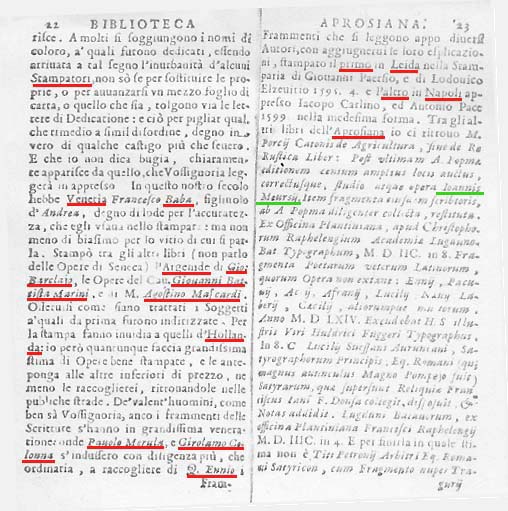 22 BIBLIOTECA
risce. A molti si soggiungono i nomi di
coloro, a' quali furono dedicati, essendo
arriuata a tal segno l'inurbanità d'alcuni
Stampatori, non sò se per sostituire le pro-
prie, o per auuanzarsi vn mezzo foglio di
carta, o quello che sia, tolgono via le let-
tere di Dedicatione: e ciò per pigliar qual-
che rimedio a simil disordine, degno in
vero di qualche castigo più che seuero.
E che io non dica bugia, chiaramen-
te apparisce da quello, che Vossignoria leg-
gerà in appresso In questo nostro secolo
hebbe Venetia Francesco Baba, figliuolo
d'Andrea, degno di lode per l'accuratez-
za, che egli vsaua nello stampare: ma non
meno di biasimo per lo vitio di cui si par-
la. Stampò tra gli altri libri (non parlo
delle Opere di Seneca) l'Argenide di Gio:
Barclaio, le Opere del Cau. Giouanni Bat-
tista Marini, e di M. Agostino Mascardi.
Osserui come siano trattati i Soggetti
a'quali da prima furono indirizzate. Per
la stampa fanno inuidia a quelli d'Hollan-
da: io però quantunque faccia grandissima
stima di Opere bene stampate, e le ante-
ponga alle altre inferiori di prezzo, ne
meno le raccoglierei, ritrouandole nelle
publiche strade. De'valent'huomini, come
ben sà Vossignoria, anco i frammenti delle
Scritture s'hanno in grandissima venera-
tione: onde Pauolo Merula, e Girolamo Co-
lonna s'indussero con diligenza più, che
ordinaria, a raccogliere di Q. Ennio i
Fram-
APROSIANA. 23
Frammenti che si leggono appo diuersi
Autori, con aggiugnerui le loro esplicazio-
ni, stampato il primo in Leida nella Stam-
paria di Giouanni Paetsio, e di Lodouico
Elzeuirio 1595. 4. e l'altro in Napoli ap-
presso Iacopo Carlino, ed Antonio Pace
1599 nella medesima forma. Tra gli al-
tri libri dell'Aprosiana io ci ritrouo M.
Porcij Catonis de Agricultura, siue de Re
Rustica Liber: Post vltimam A. Popma
editionem censum amplius locis auctus,
correctusque, studio atque opera Ioannis
Meursij. Item fragmenta eiusdem scriptoris,
ab A Popma diligenter collecta, restituta.
Ex Officina Plantiniana, apud Christoph.
Raphelengium Academiæ Lugduno-
Bat Typographum, M. D. IIC. in 8. Frag-
menta Poetarum veterum Latinorum,
quorum Opera non extant: Ennij, Pacu-
uij, Accij, Afranij, Lucilij, Næuij, La-
berij, Cecilij, aliorumque multorum
Anno M. D LXIV. Excudebat H S. Illu-
stris Viri Huldrici Fuggeri Typographus.
In 8. C Lucilij Suessani Aurunciani, Sa-
tyrographorum Principis, Eq. Romani (qui
magnus auunculus Magno Pompejo fuit)
Satyrarum, quæ supersunt Reliquiæ Fran-
ciscus Iani F. Dousa colegit, disposuit, &
Notas addidit. Lugduni Batauorum, ex
officina Plantiniana Francisci Raphelengij
M. D. IIIC. in 4. E per finirla in quale sti-
ma non è Titi Petronij Arbitri Eq. Roma-
ni Satyricon, cum Fragmento nuper Tra-
gurij